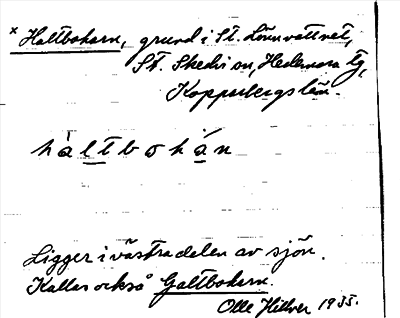 × Haltbokarn, grund i St. Lönnvattnet,
St. Skedvi sn, Hedemora tg,
Kopparbergs län.
hàltbokán
Ligger i västra delen av sjön.
Kallas också Galtbokarn.
Olle Hillver 1935.